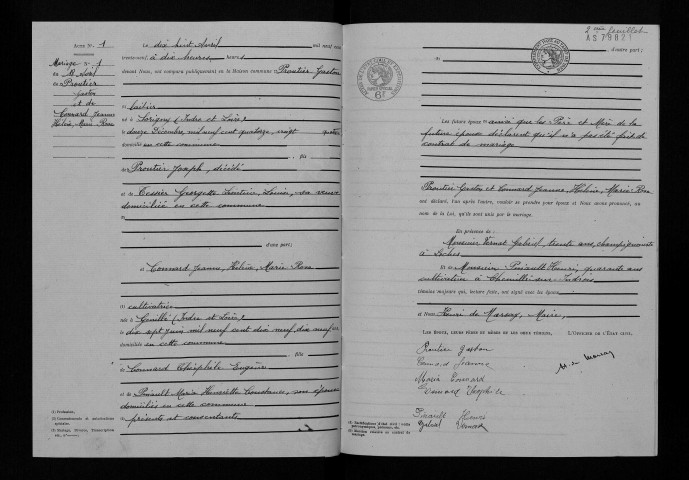 Acte N° 1
Mariage N° 1
du 18 Avril
de Proutier
Gaston
et de
Connard Jeanne
Helène, Marie Rose
Le dix huit Avril mil neuf cent
trente-neuf à dix heures
devant Nous, ont comparu publiquement en la Maison commune Proutier Gaston
laitier
né à Lorigny (Indre et Loire)
le douze Décembre mil neuf cent quatorze, vingt quatre
domicilié en cette commune
fils
de Proutier Joseph, décédé
et de Tessier Georgette Louise, sa veuve
domiciliée en cette commune
d'une part;
et Connard Jeanne, Helène, Marie Rose
(1) cultivatrice
née à Genillé (Indre et Loire)
le dix sept juin mil neuf cent dix neuf, dix neuf ans
domiciliée en cette commune
fille
de Connard Théophile Eugène
et de Pinault Marie Henriette Constance, son épouse
domiciliés en cette commune
présents et consentants
(1) Profession.
2ème feuillet
AS 79821
d'autre part;
Les futurs époux ainsi que les Père et Mère de la
future épouse déclarent qu'il n'a pas été fait de
contrat de mariage
Proutier Gaston et Connard Jeanne, Helène, Marie Rose
ont déclaré, l'un après l'autre, vouloir se prendre pour époux et Nous avons prononcé, au
nom de la Loi, qu'ils sont unis par le mariage.
En présence de:
Monsieur Vernat Gabriel, trente ans, champignoniste
à Loches
Et de Monsieur Pinault Henri, quarante ans
cultivateur à Chemillé-sur-Indrois
témoins majeurs qui, lecture faite, ont signé avec les époux
et Nous Henri de Marsay, Maire,
Les époux, leurs pères et mères et les deux témoins, L'Officier de l'État civil,
Proutier Gaston
Connard Jeanne
Maria Connard
Connard Théophile
H. de Marsay
Pinault Henri
Gabriel Vernat